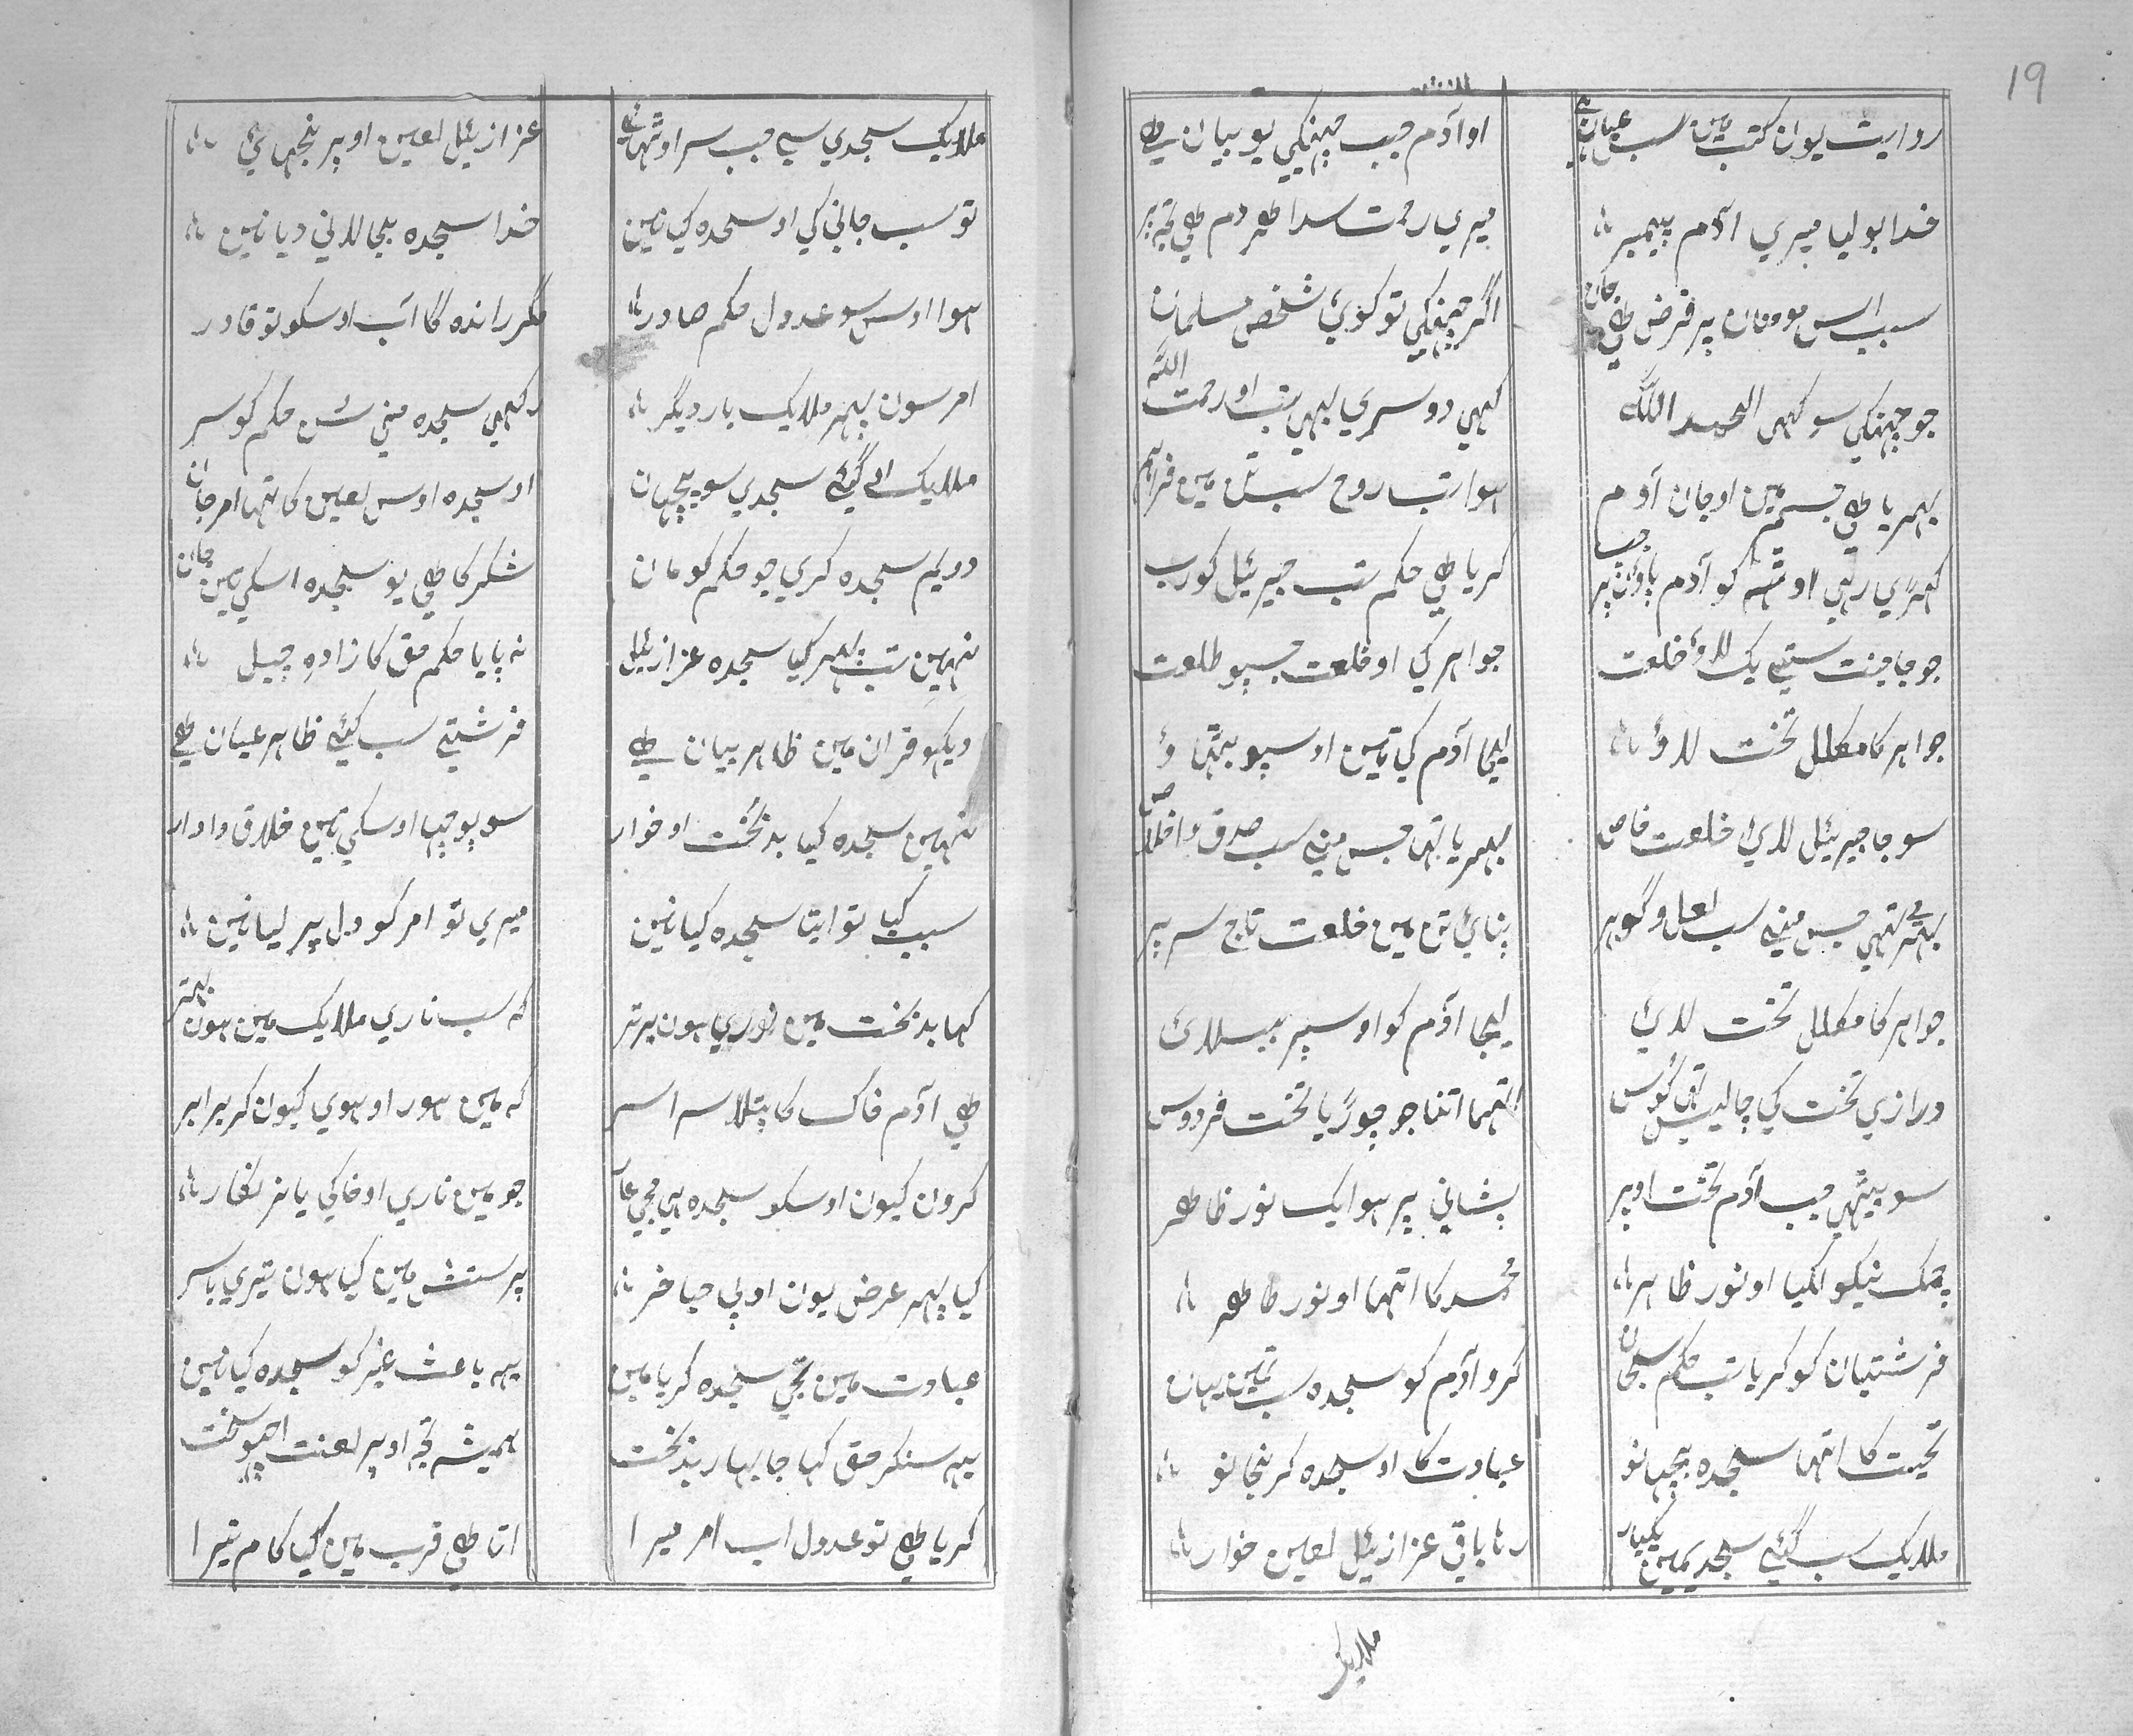 19
روایت یون کتب مین سب عیان ہی او آدم جب چہنکی یو بیان ہی
خدا بولیا میری آدم پیمبر میری رحمت سدا ہر دم ہی تجہ پر
سبب اس مومنان پر فرض ہی جان اگر چہنکی تو کوئی شخص مسلمان
جو چہنکی سو کہی الحمد اللہ کہی دوسری یہی تب او رحمت اللہ
بہریا ہی جسم مین او جان آدم ہوا تب روح سب تن مین فراہم
کہڑی رہی اوٹہہ کو آدم پاؤن پر جب کریا ہی حکم تب جبرئیل کو رب
جو جا جنت ستی یک لاؤ خلعت جواہر کی او خلعت جسپو طلعت
جواہر کا مکلل تخت لاؤ لیجا آدم کی تئین اوسپو بیٹہاؤ
سو جا جبرئیل لائی خلعت خاص بہریا تہا جس منی سب صدق و اخلاص
بہری تہی جس منی سب لعل و گوہر پنائی تن مین خلعت تاج سر پر
جواہر کا مکلل تخت لائی لیجا آدم کو اوسپر بیسلائی
درازی تخت کی چالیس تہی کوس اتہا اتنا جو چوڑیا تخت فردوس
سو بیٹہی جب آدم تخت اوپر پشانی پر ہوا یک نور ظاہر
چمک نیکو لگیا او نور ظاہر محمد کا اتہا او نور طاہر
فرشتیان کو کریا تب حکم سبحان کرو آدم کو سجدہ سب تمین یہان
تحیت کا اتہا سجدہ پچہانو عبادت کا او سجدہ کر نجانو
ملایک سب گئی سجدیمین یکبار رہا باقی عزازیل لعین خوار
ملایک
ملایک سجدی سی جب سر اوٹہائی عزازیل لعین اوپر نجہائی
تو سب جانی کی او سجدہ کی نہین خدا سجدہ بجا لانی دیا نہین
ہوا اوس سو عدول حکم صادر مگر راندہ گا اب اوسکو تو قادر
امر سون پہر ملایک بار دیگر رکہی سجدہ منی سن حکم کو سر
ملایک ای گئی سجدی سو پچہان او سجدہ اوس لعین کا تہا امر جان
دویم سجدہ کری جو حکم کو مان شکر کا ہی یو سجدہ اسکی تئین جان
نہین تب پہر کیا سجدہ عزازیل نہ پایا حکم حق کا زادہ چیل
دیکہو قران مین ظاہر بیان ہی فرشتی سب کئی ظاہر عیان ہی
نہین سجدہ کیا بدبخت او خوار سو پوچہا اوسکی تئین خلاق دادار
سبب کیا تو ایتا سجدہ کیا نہین میری تو امر کو دل پر لیا نہین
کہا بدبخت مین نوری ہون برتر کہ سب ناری ملایک مین ہون بہتر
ہی آدم خاک کا پتلا سراسر کہ مین ہور او ہوی کیون کر برابر
کرون کیون اوسکو سجدہ ہی مجی عار جو مین ناری او خاکی یا نر نکار
کیا پہر عرض یون او بی حیا خر پرستش مین کیا ہون تیری یاسر
عبادت مین تجی سجدہ کریا مین یہہ باعث غیر کو سجدہ کیا نہین
یہہ سنکر حق کہا جا بہار بدبخت ہمیشہ تجہ اوپر لعنت اچہو سخت
کریا ہی تو عدول اب امر میرا اتا ہی قرب مین کیا کام تیرا